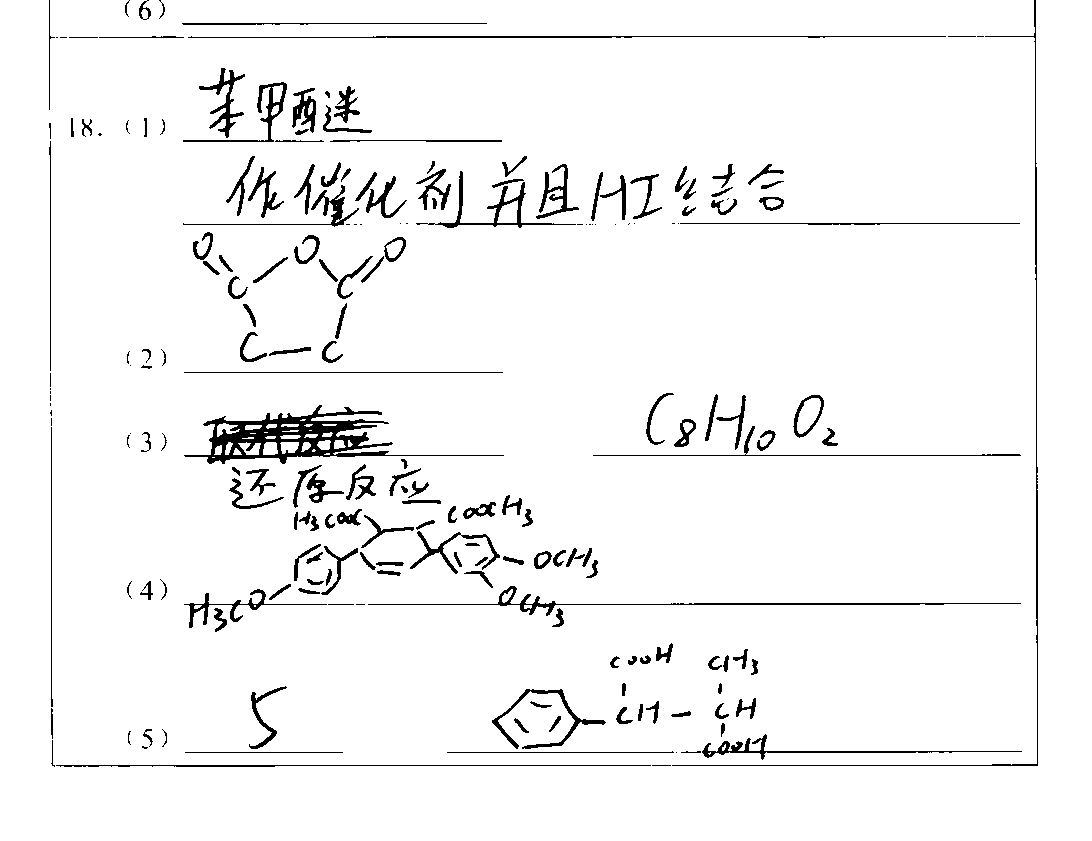 (6)
18. (1) 苯甲酸迷
作催化剂并且HI结合
O O O
C C
(2) C—C
(3) 取代反应 C8H10O2
还原反应
H3COOC COOCH3
OCH3
(4) H3CO OCH3
COOH CH3
(5) 5 CH — CH
COOH